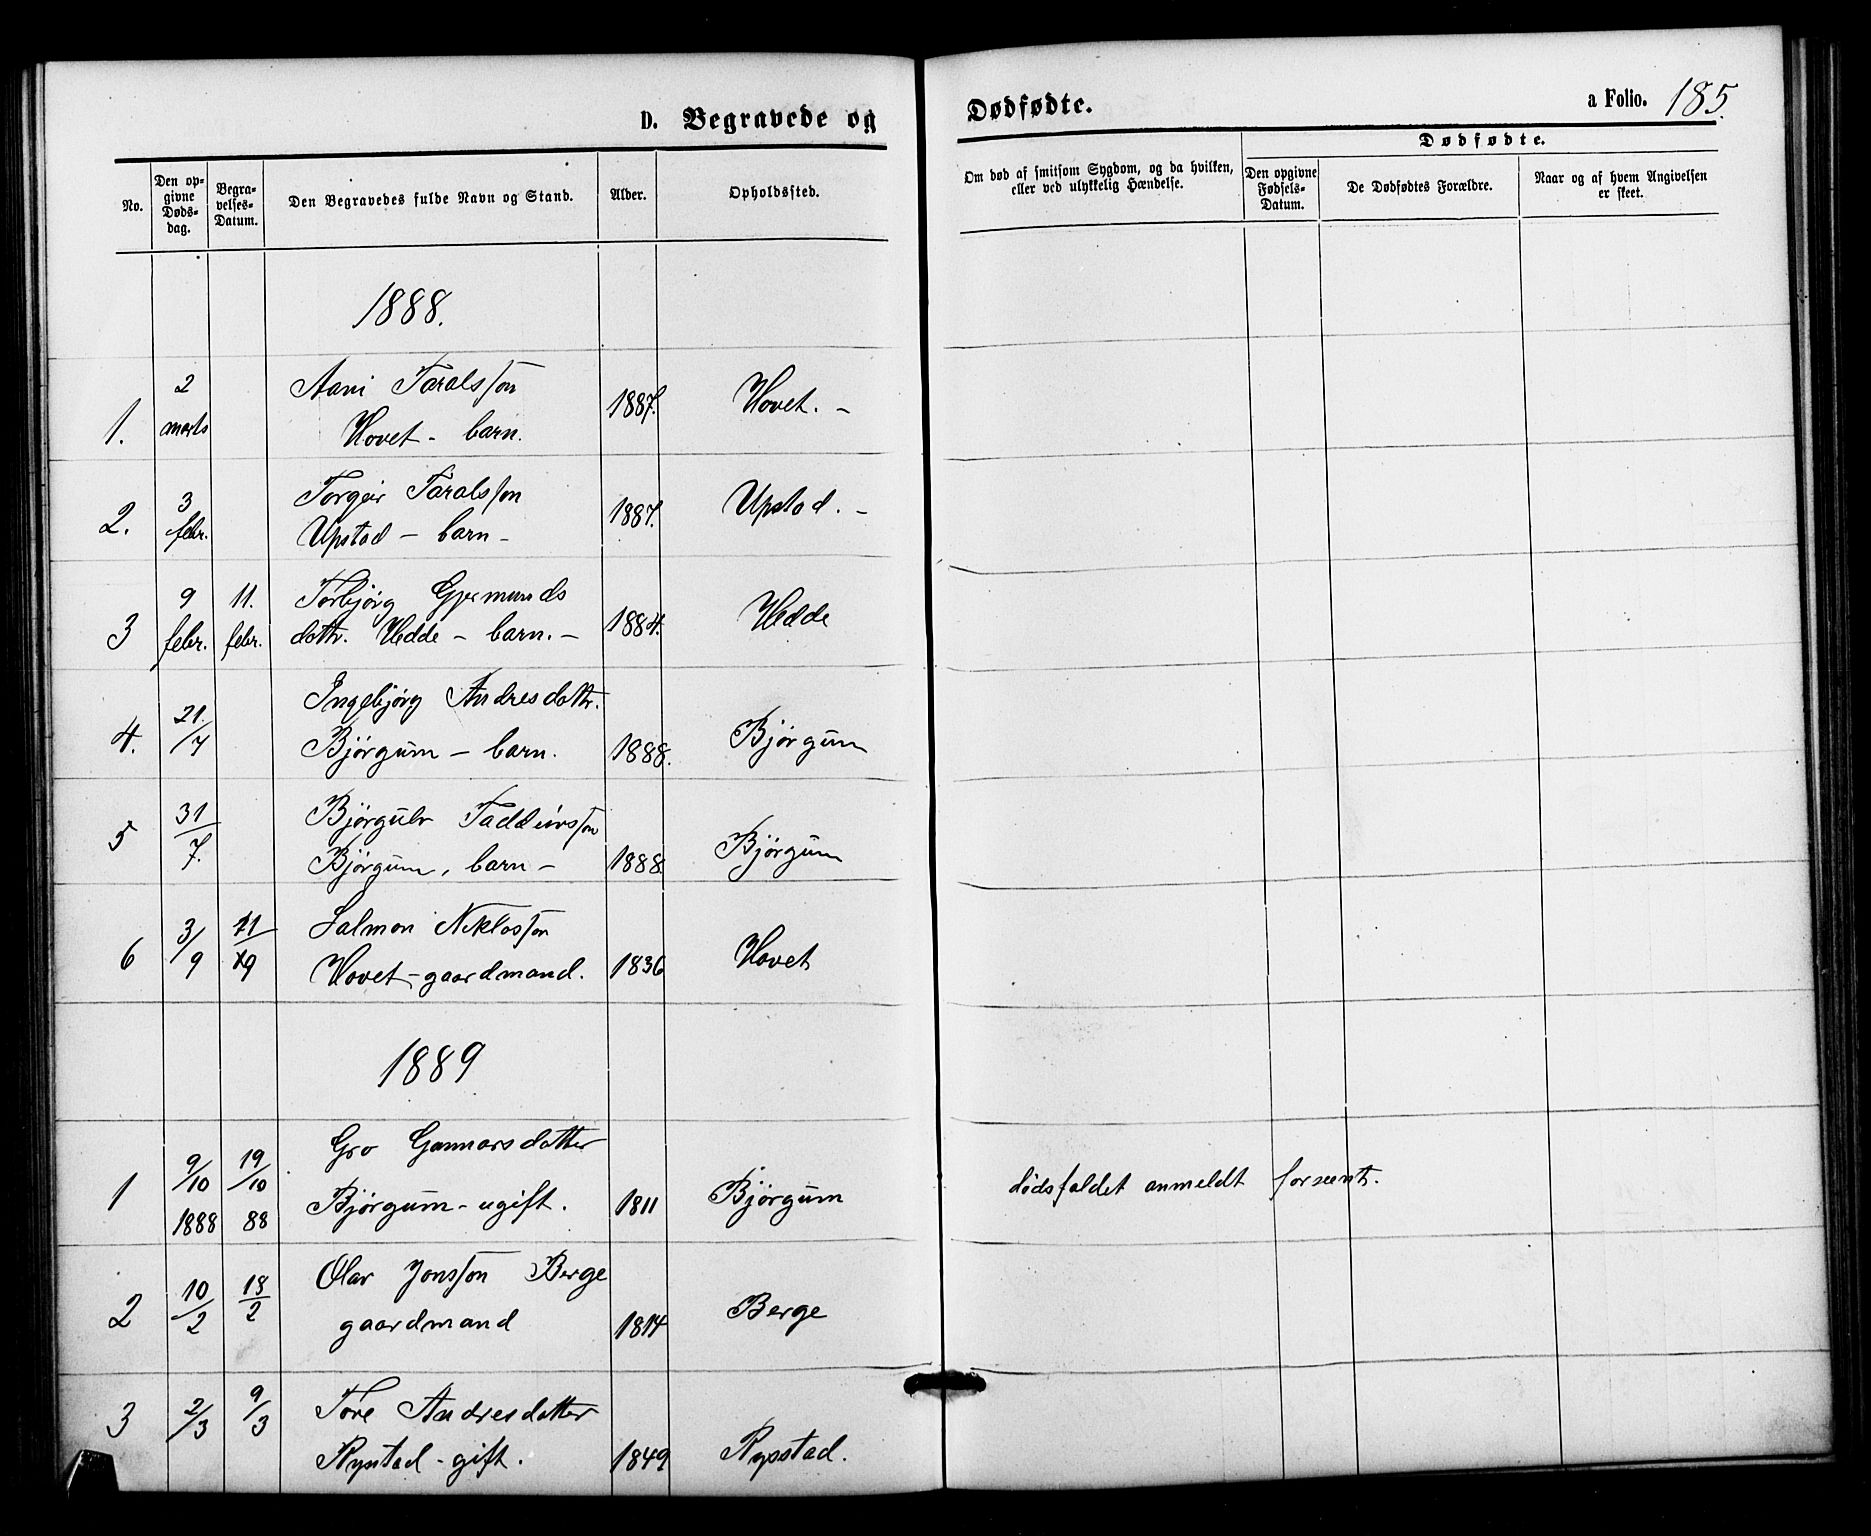 D. Begravede og
Dødfødte.
a Folio. 185.
No.
Den opgivne Dødsdag.
Begravelses-Datum.
Den Begravedes fulde Navn og Stand.
Alder.
Opholdssted.
Om død af smitsom Sygdom, og da hvilken,
eller ved ulykkelig Hændelse.
Dødfødte.
Den opgivne Fødsels-Datum.
De Dødfødtes Forældre.
Naar og af hvem Angivelsen
er skeet.
1888.
1. 2 marts Aani Taralsson
Hovet - barn. 1887. Hovet. -
2. 3 febr. Torgeir Taralsson
Upstad - barn - 1887. Upstad. -
3 9 febr. 11. febr. Torbjørg Gjermunds
dottr. Hedde - barn. - 1884. Hedde
4. 21./7 Ingebjørg Andresdottr.
Bjørgum - barn. 1888. Bjørgum
5 31/7. Bjørgulv Taddeivsson
Bjørgum, barn - 1888. Bjørgum
6 3/9 11/9 Salmon Niklosson
Hovet - gaardmand. 1836 Hovet
1889
1 9/10 1888 19/10 88 Gro Gunnarsdotter
Bjørgum - ugift. 1811 Bjørgum dødsfaldet anmeldt forseent.
2 10/2 18/2 Olav Jonsson Berge
gaardmand 1814 Berge
3 2/3 9/3 Tore Andresdotter
Rystad - gift. 1849 Rysstad.